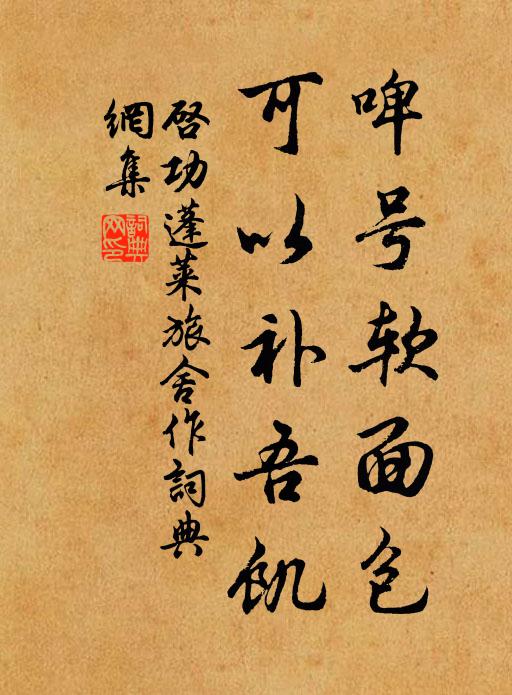 啤号软面包
可以补吾饥
启功蓬莱旅舍作詞典
網集
詞典
网印